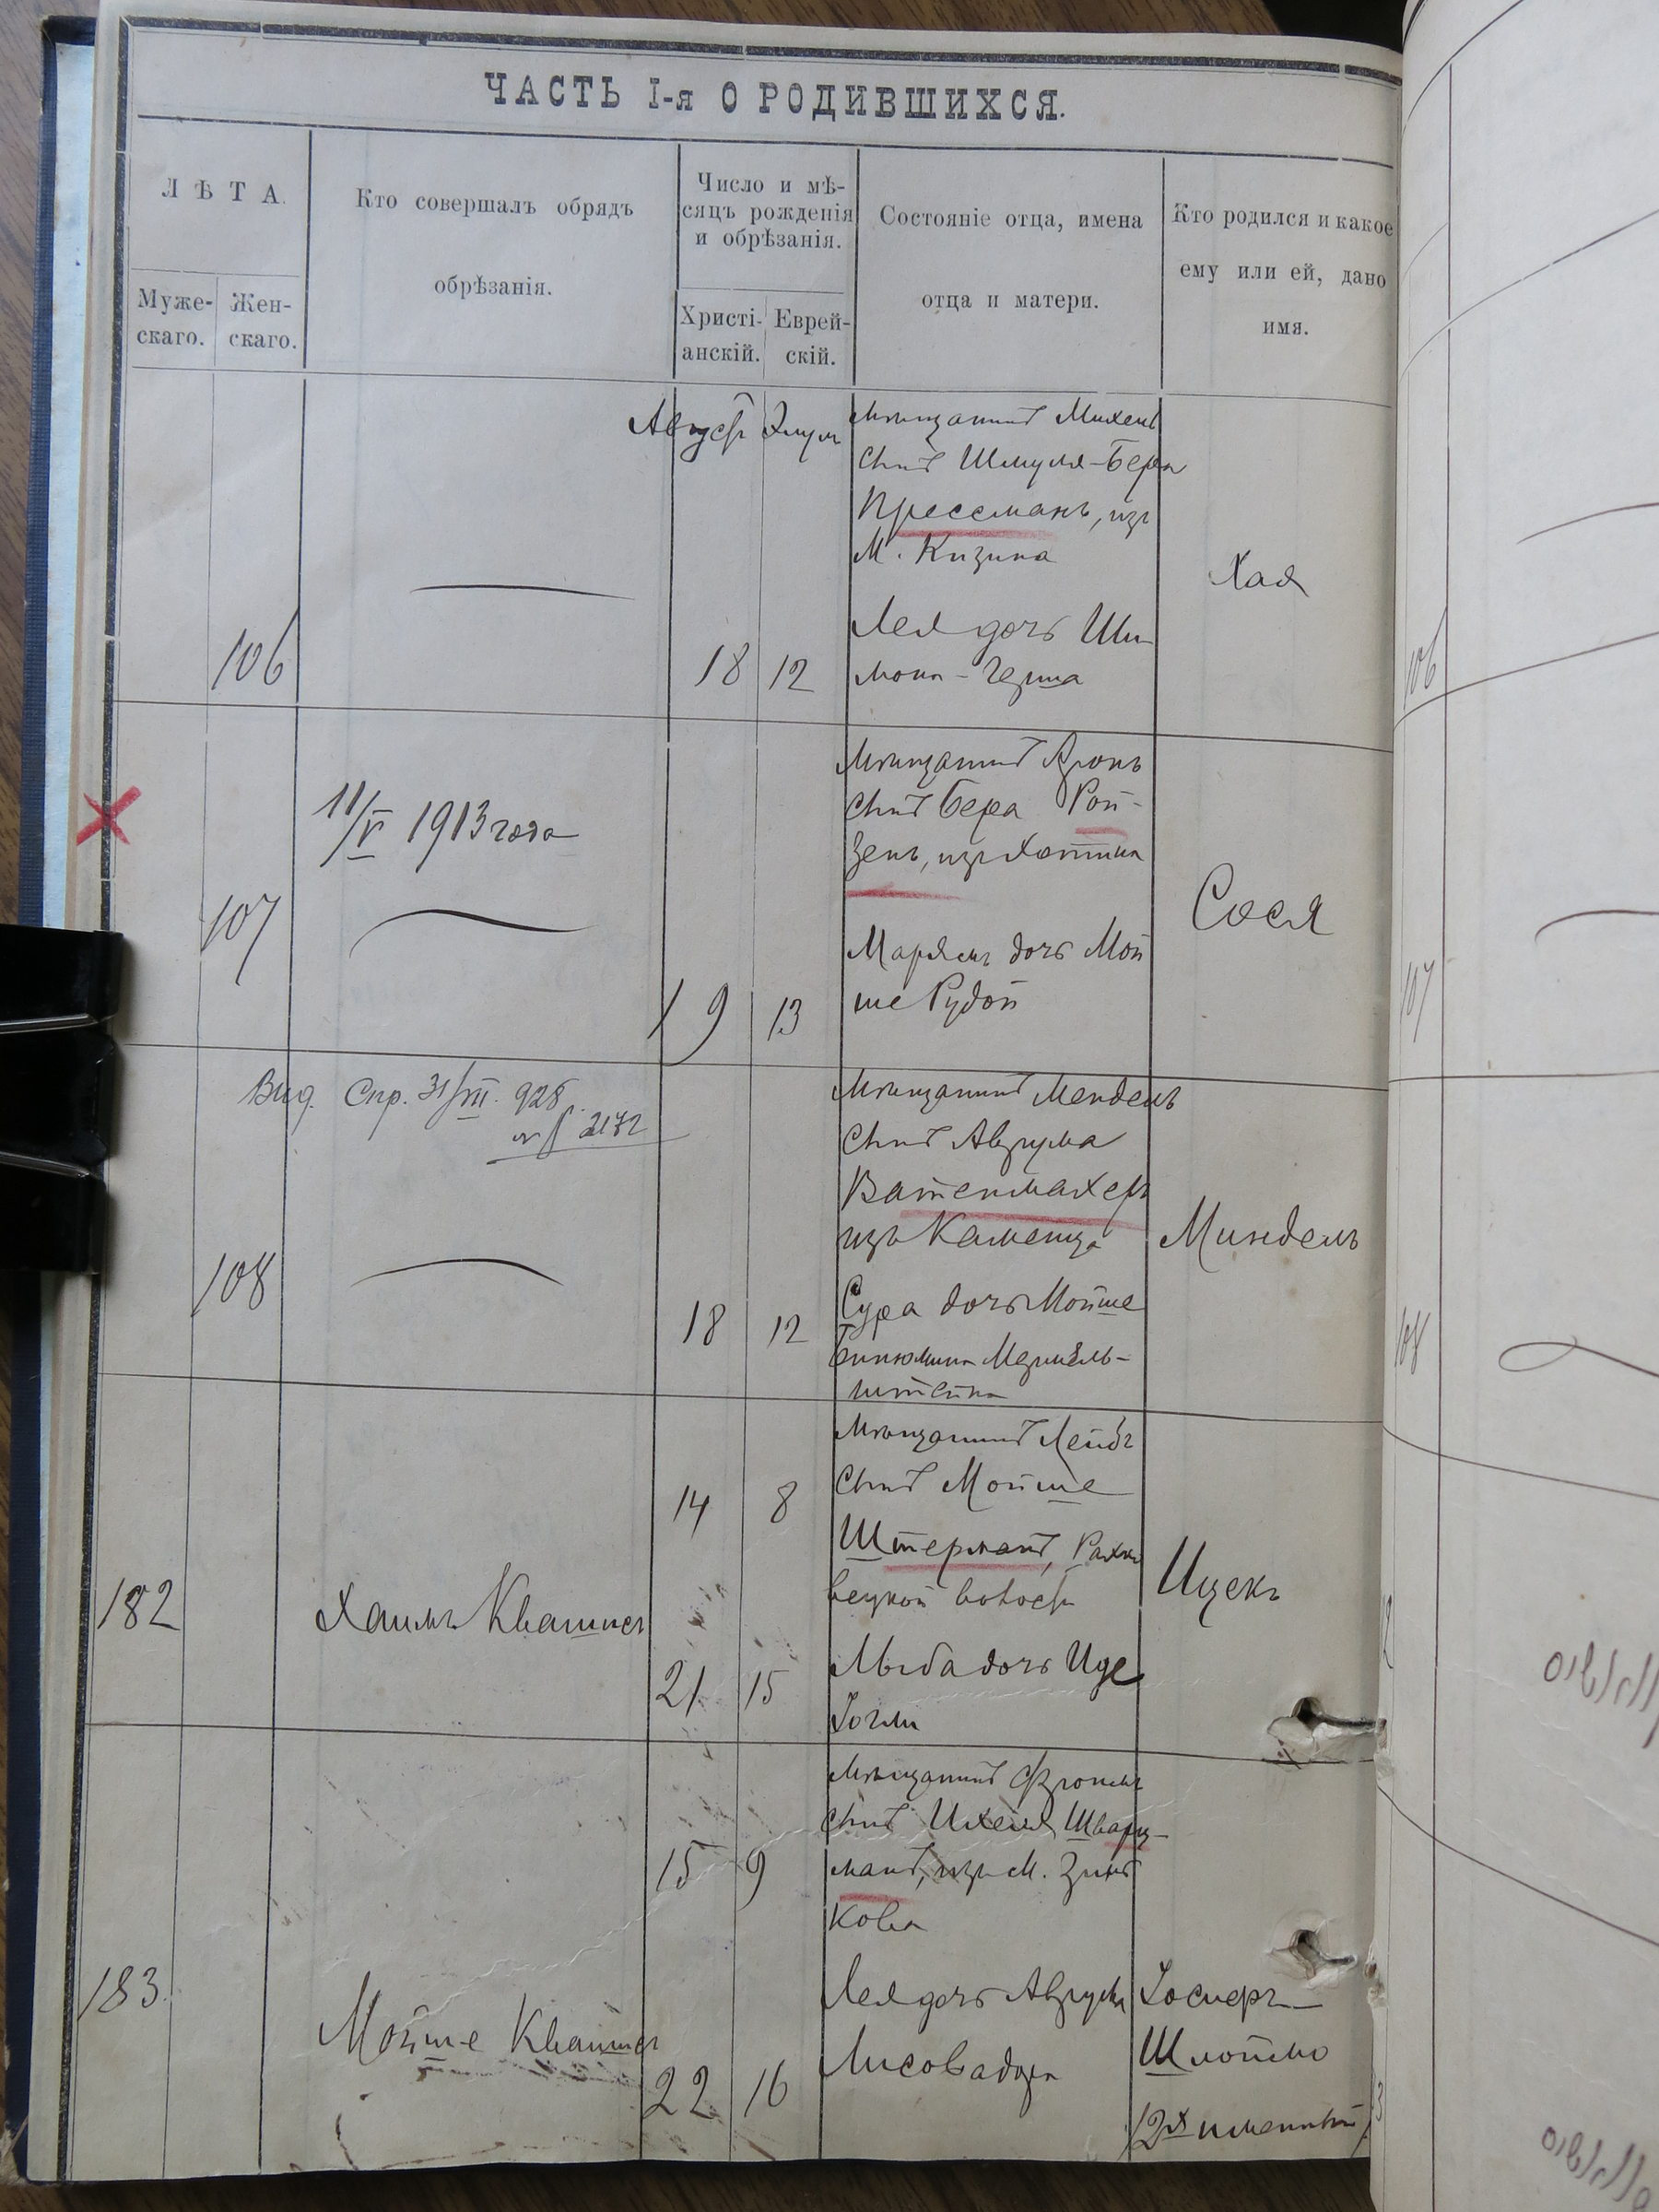 ЧАСТЬ I-я О РОДИВШИХСЯ.
ЛѢТА.
Муже-
скаго.
Жен-
скаго.
Кто совершалъ обрядъ
обрѣзанія.
Число и мѣ-
сяцъ рожденія
и обрѣзанія.
Христі-
анскій.
Еврей-
скій.
Состояніе отца, имена
отца и матери.
Кто родился и какое
ему или ей, дано
имя.
Август Элулъ
106
18 12
мѣщанинъ Михель
сынъ Шмуля-Бера
Прессманъ, изъ
М. Кизина
Лея дочь Ши
мона-Герша
Хая
107
11/V 1913 года
19 13
мѣщанинъ Аронъ
сынъ Бера Рой-
зенъ, изъ Хотина
Марьямъ дочь Мой
ше Рудой
Сося
Выд. Спр. 31/VII. 928
108
18 12
мѣщанинъ Мендель
сынъ Аврума
Ватенмахеръ
изъ Каменца
Сура дочь Мойше
Бинюмина Мермель-
штейна
Миндель
182
Хаимъ Квашнеъ
14 8
21 15
мѣщанинъ Лейбъ
сынъ Мойше
Штерманъ,
волости
дочь Иде
Ицекъ
183
Мойше Квашнеъ
15 9
22 16
мѣщанинъ Фроимъ
сынъ Ихеля Шварц-
манъ, изъ М. Зинь
кова
Лея дочь Аврума
Лисоводера
Іосиеръ-
Шлоймо
/2х именный/
106
107
108